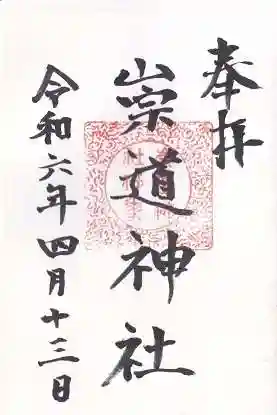 奉拝
崇道神社
令和六年四月十三日